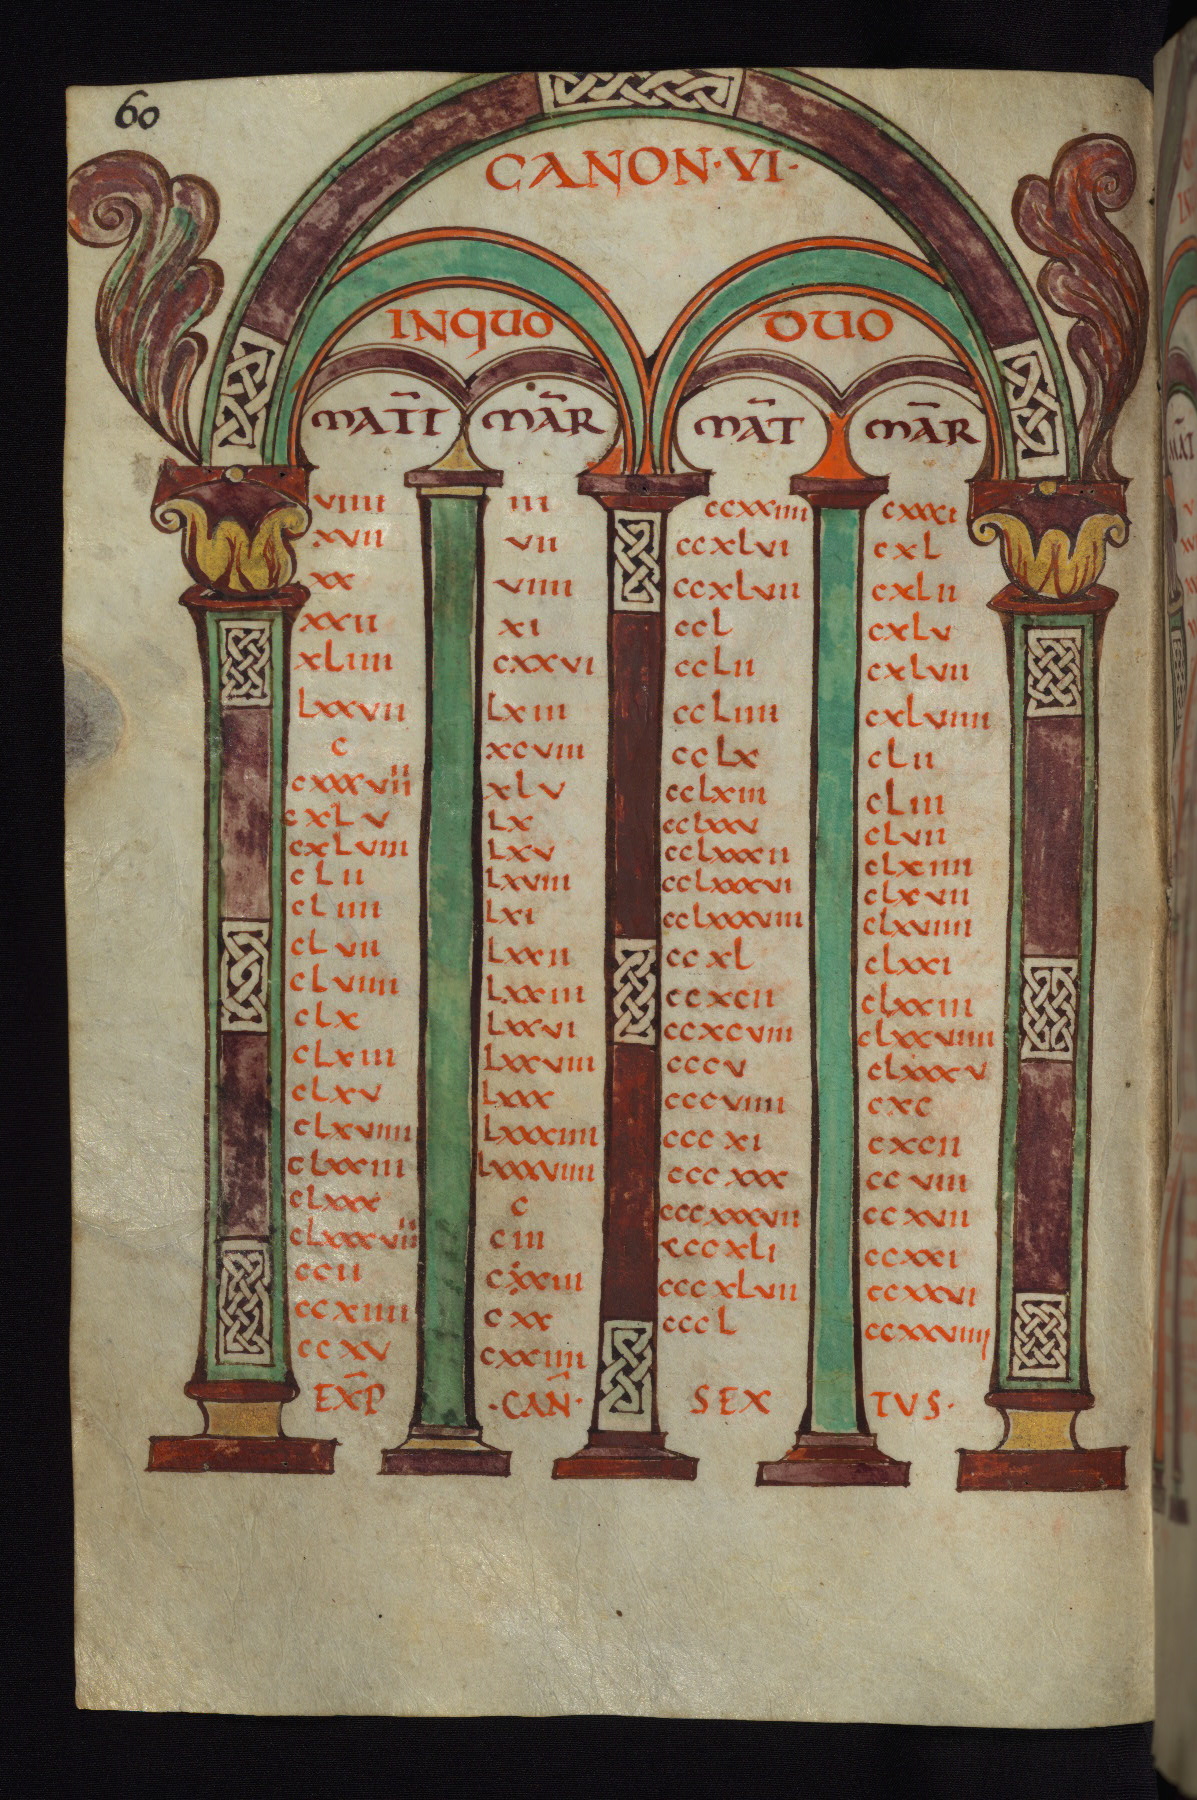 60
CANON·VI·
INQUO DUO
MATT MAR MAT MAR
viiii iii ccxxiiii cxxxi
xvii vii ccxlvi cxl
xx viiii ccxlvii cxlii
xxii xi ccl cxlv
xliiii cxxvi cclii cxlvii
lxxvii lxiii ccliiii cxlviiii
c xcviii cclx clii
cxxxvii xlv cclxiii cliii
cxlv lx cclxxv clvii
cxlviii lxv cclxxxii clxiiii
clii lxviii cclxxxvi clxvii
cliiii lxi cclxxxviii clxviiii
clvii lxxii ccxl clxxi
clviiii lxxiii ccxcii clxxiii
clx lxxvi ccxcviii clxxviiii
clxiii lxxviii cccv clxxxv
clxv lxxx cccviiii cxc
clxviiii lxxxiiii cccxi cxcii
clxxiii lxxxviiii cccxxx ccviii
clxxx c cccxxxvii ccxvii
clxxxvii ciii cccxli ccxxi
ccii cxxiii cccxlvii ccxxvi
ccxiiii cxx cccl ccxxviiii
ccxv cxxiiii
EXP ·CAN· SEX TUS·